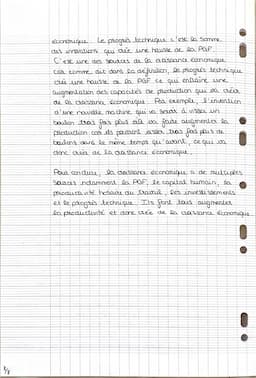 économique. Le progrès technique c'est la somme
des inventions qui crée une hausse de la PGF.
C'est une des sources de la croissance économique
car comme dit dans la définition, le progrès technique
crée une hausse de la PGF ce qui entraîne une
augmentation des capacités de production qui va créer
de la croissance économique. Par exemple, l'invention
d'une nouvelle machine qui va servir à visser un
boulon trois fois plus vite va faire augmenter la
production car ils peuvent visser trois fois plus de
boulons dans le même temps qu'avant, ce qui va
donc créer de la croissance économique.
Pour conclure, la croissance économique a de multiples
sources notamment la PGF, le capital humain, la
productivité horaire du travail, les investissements
et le progrès technique. Ils font tous augmenter
la productivité et donc crée de la croissance économique